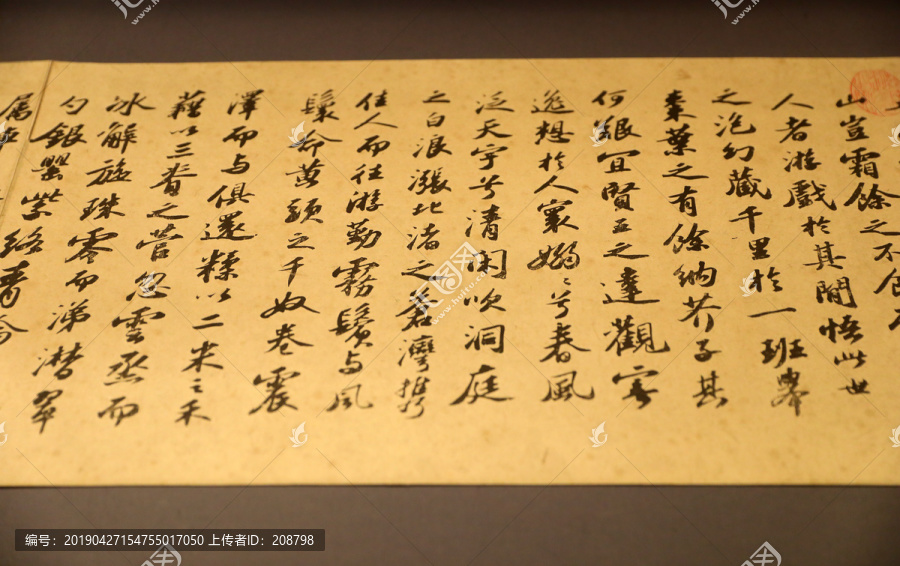 山豈霜餘之不食
人者游戲於其間悟此世
之泡幻藏千里於一班舉
棗葉之有餘納芥子其
何艱宜賢王之達觀寄
逸想於人寰嫋〻兮春風
泛天宇兮清閑吹洞庭
之白浪漲北渚之蒼灣攜
佳人而往游勤霧鬢與風
鬟命黃頭之千奴卷震
澤而與俱還糅以二米之禾
藉以三脊之菅忽雲烝而
冰解旋珠零而涕潸翠
勺銀罌紫絡青
屬車
编号：20190427154755017050 上传者ID：208798